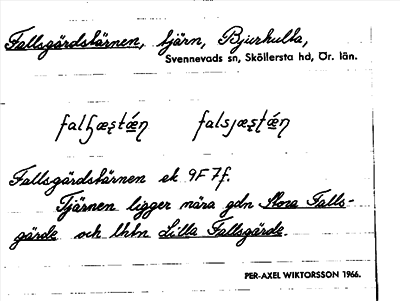 Fallsgärdstärnen, tjärn, Bjurhulta,
Svennevads sn, Sköllersta hd, Ör. län.
falsjæstǽn
Fallsgärdstärnen ek 9F7f.
Tjärnen ligger nära gdn Stora Falls-
gärde och lhtn Lilla Fallsgärde.
PER-AXEL WIKTORSSON 1966.